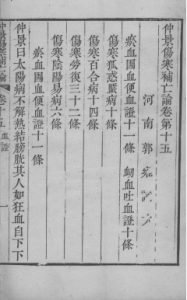 仲景傷寒補亡論卷第十五
河南郭雍
瘀血圊血便血證十一條　衂血吐血證十條
傷寒狐惑䘌病十條
傷寒百合病十四條
傷寒勞復三十二條
傷寒陰陽易病六條
瘀血圊血便血證十一條
仲景曰太陽病不解熱結膀胱其人如狂血自下下